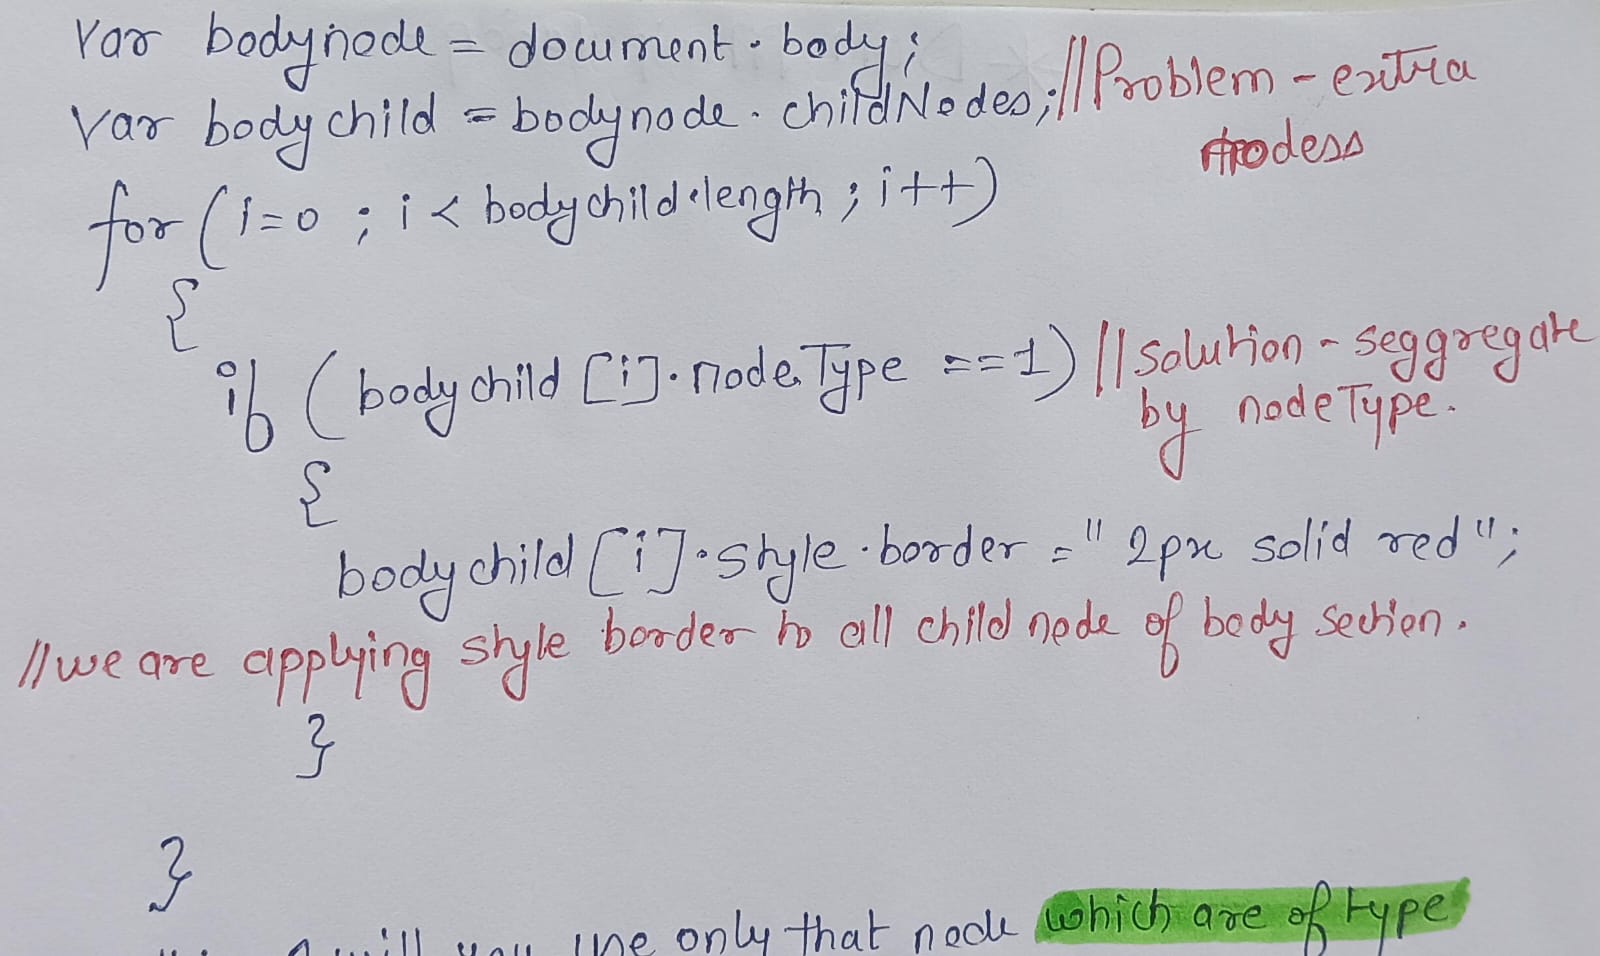 Var bodynode = document.body;
Var bodychild = bodynode.childNodes; //Problem - extra
nodess
for (i=0 ; i < bodychild.length ; i++)
{
if (bodychild [i].nodeType ==1) //solution - seggregate
by nodeType.
{
bodychild [i].style.border = "2px solid red";
//we are applying style border to all child node of body section.
}
}
will you use only that node which are of type